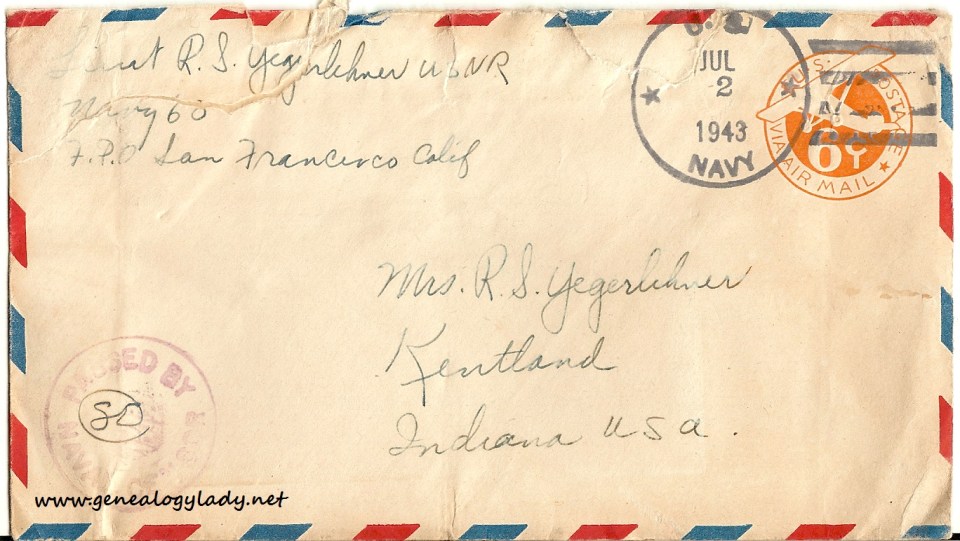 Lieut R. S. Yegerlehner USNR
Navy 60
F.P.O San Francisco Calif
JUL
2
1943
NAVY
U.S. POSTAGE
6¢
VIA AIR MAIL
Mrs. R. S. Yegerlehner
Kentland
Indiana USA.
PASSED BY
SD
www.genealogylady.net